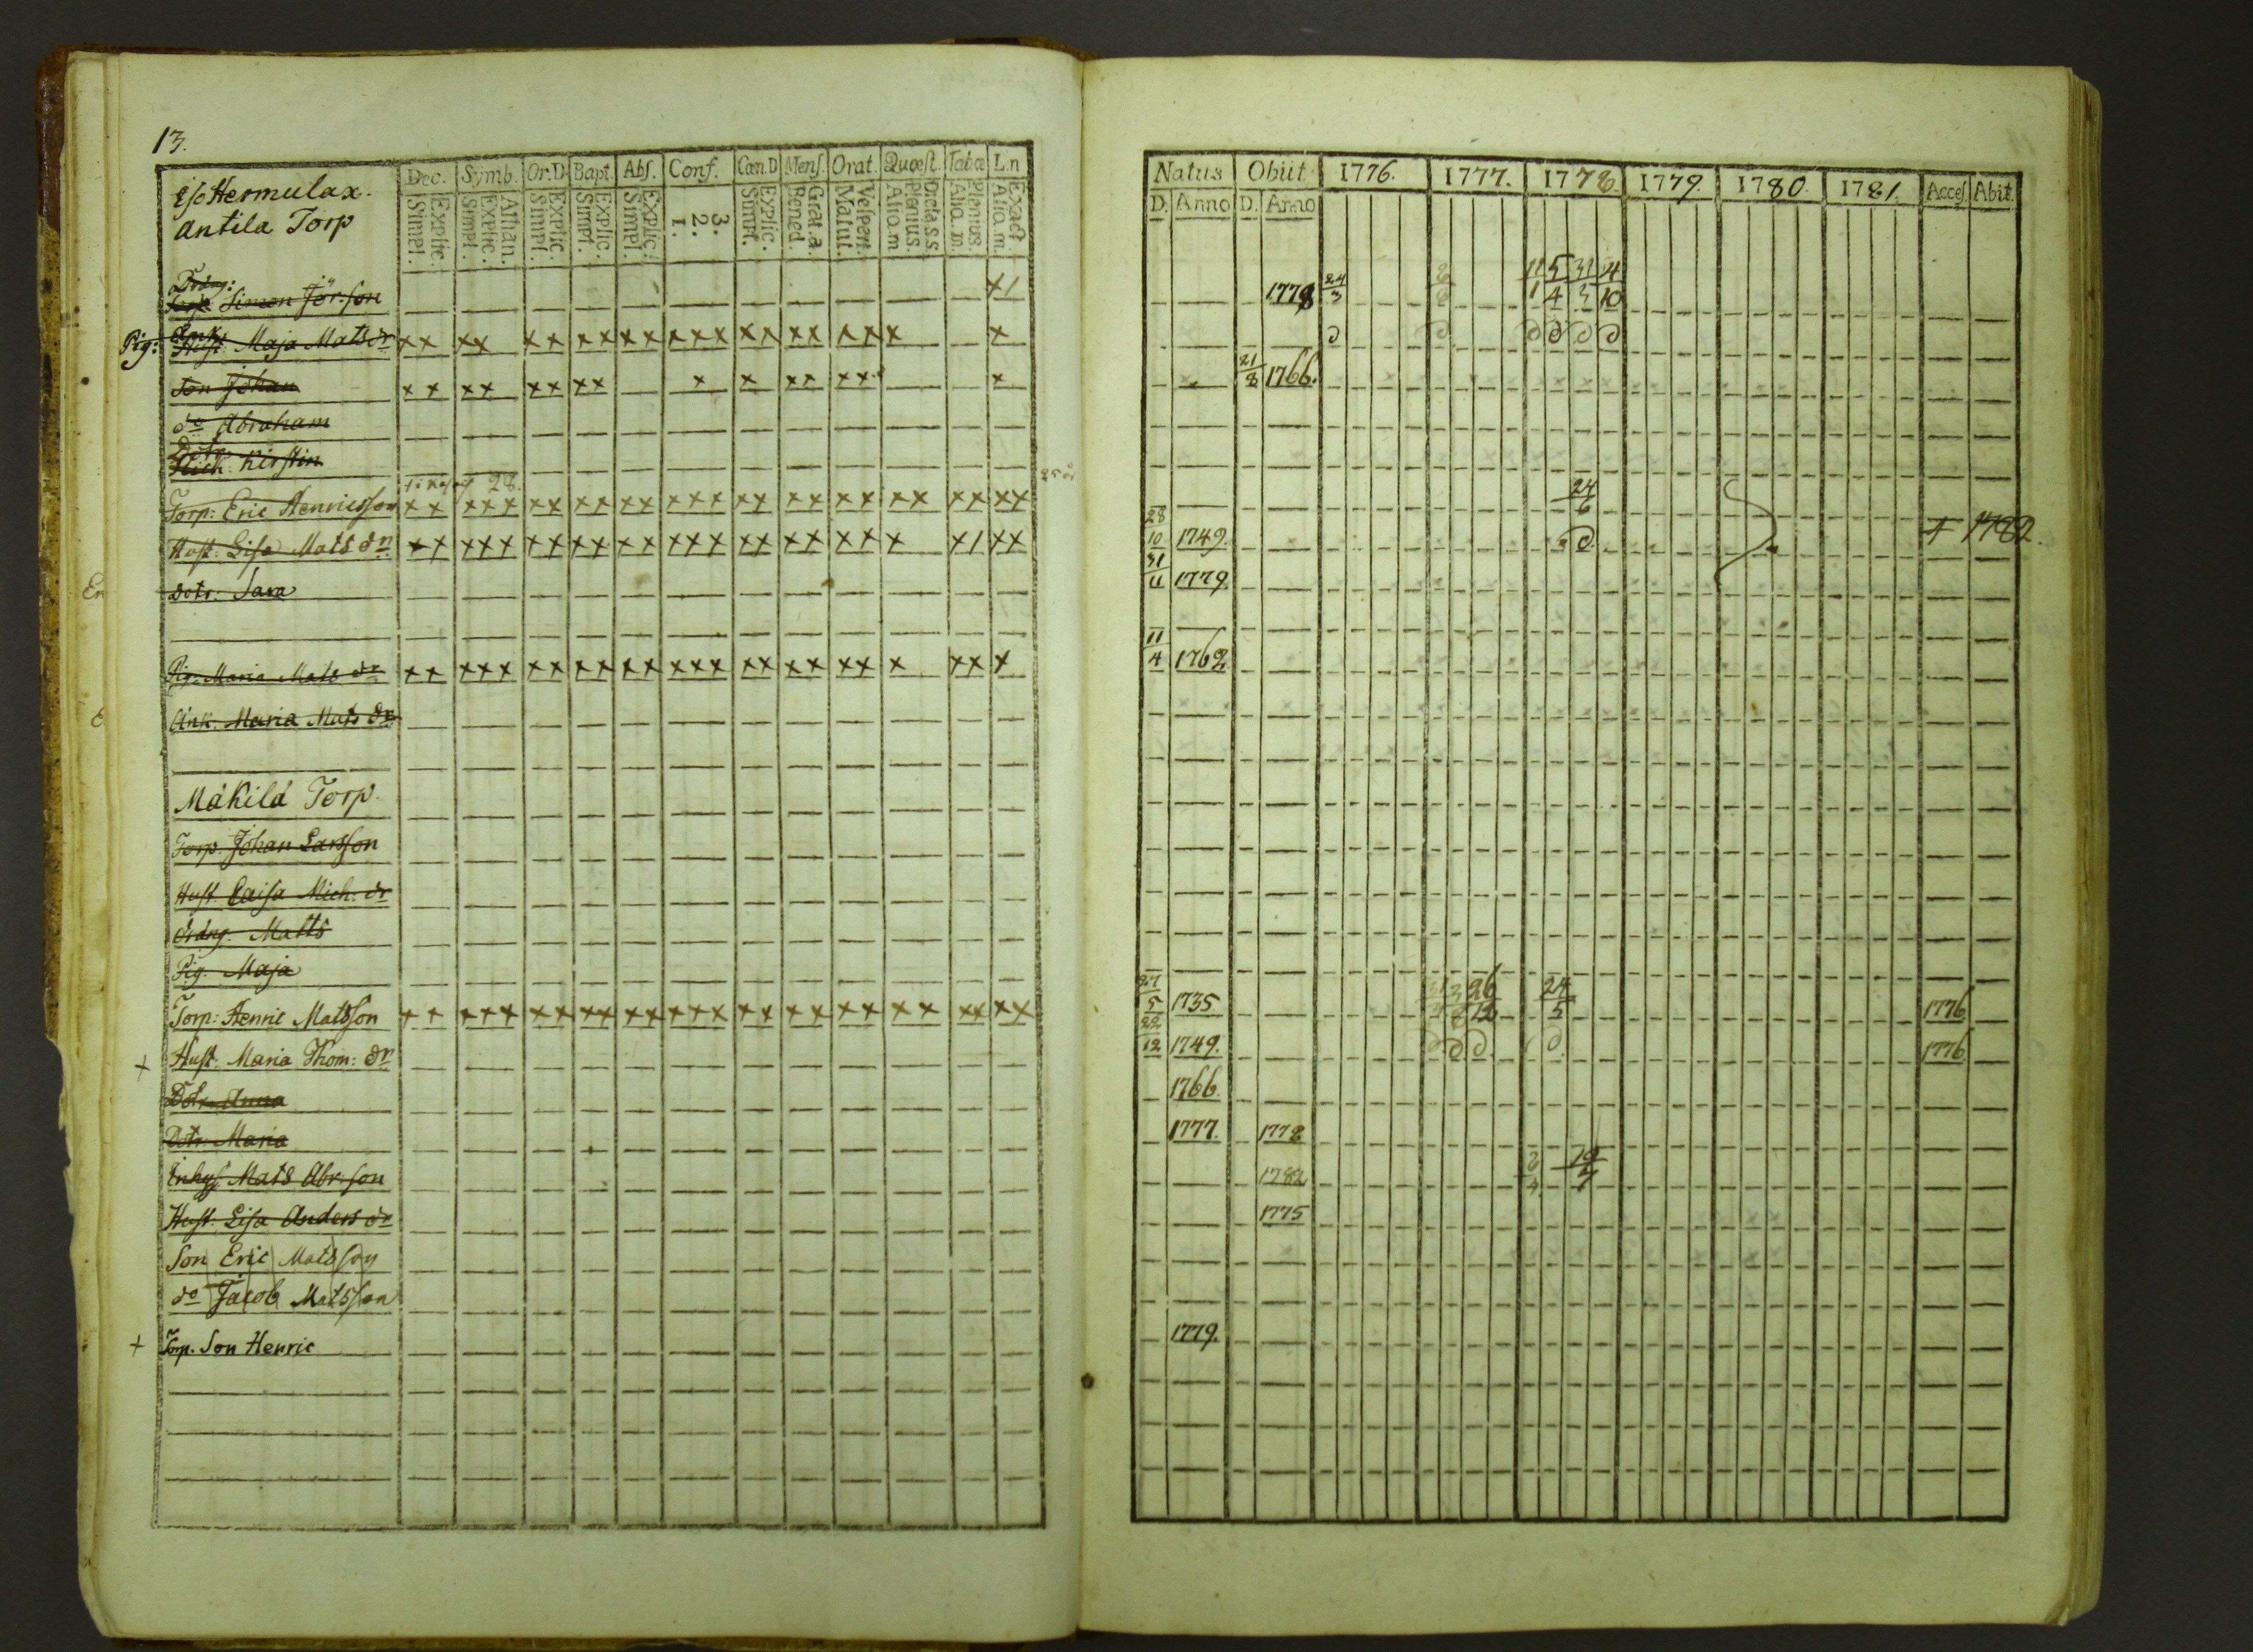 13.
Dec. Symb. Or.D Bapt. Abs. Conf. Cœn.D Mens. Orat. Quæst. Tabæ L.n
Iso Hermulax.
Antila Torp
Explic. Simpl. Athan. Explic. Simpl. Explic. Simpl. Explic. Simpl. Explic. Simpl. 3. 2. 1. Explic. Simpl. Grat. a. Bened. Vespert. Matut. Dictass. Plenius. Aliq.m. Plenius. Aliq.m. Exact. Aliq.m.
Dräng:
Torp: Simon Jör:son x/
Pig: Enk:
Hust: Maja Mats dr xx xx xx xx xx xxx xx xx xx x x
Son Johan xx xx xx xx x x xx xx x
do Abraham
Dotr:
Mich: Kirstin
28.
Torp: Eric Henricsson xx xxx xx xx xx xxx xx xx xx xx xx xx
Hust: Lisa Mats dr xx xxx xx xx xx xxx xx xx xx x x/ xx
Dotr: Sara
Pig: Maria Mats dr xx xxx xx xx xx xxx xx xx xx x xx x
Enk: Maria Mats dr
Mäkilä Torp
Torp: Johan Larsson
Hust: Caisa Mich: dr
dräng: Matts
Pig: Maja
Torp: Henric Matsson xx xxx xx xx xx xxx xx xx xx xx xx xx
+ Hust: Maria Thom: dr
Dotr: Anna
Dotr: Maria
Inhys: Mats Abr:son
Hust: Lisa Anders dr
Son Eric Matsson
do Jacob Matsson
+ Torp. Son Henric
Natus Obiit 1776. 1777. 1778. 1779. 1780. 1781. Acces. Abit.
D. Anno D. Anno
1778 24/3 11/1 5/4 31/3 4/10
21/8 1766.
24/6
28/10 1749. + 1782.
31/11 1779.
11/4 1762
27/5 1735 26/12 24/5 1776
22/12 1749. 1776
1766.
1777. 1778
1782 19/7
1775
1779.